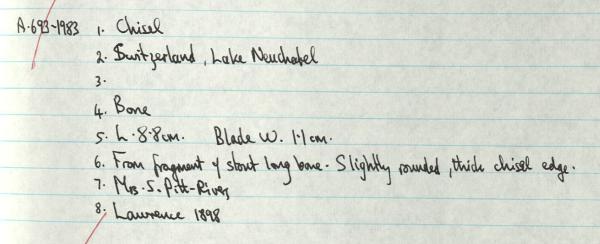 A.693-1983 1. Chisel
2. Switzerland, Lake Neuchatel
3.
4. Bone
5. L. 8.8cm. Blade W. 1.1cm.
6. From fragment of stout long bone. Slightly rounded, thick chisel edge.
7. Mrs. S. Pitt-Rivers
8. Lawrence 1898